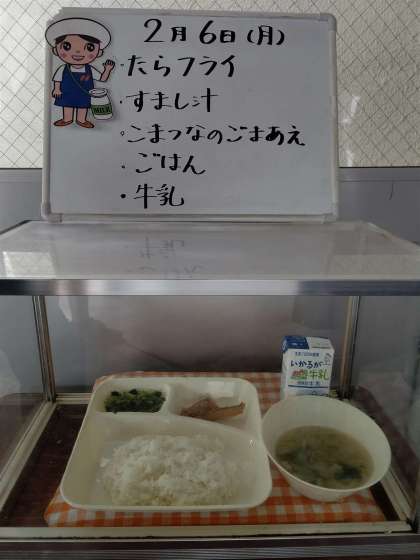 2月6日(月)
・たらフライ
・すまし汁
・こまつなのごまあえ
・ごはん
・牛乳
MILK
いかるが
牛乳